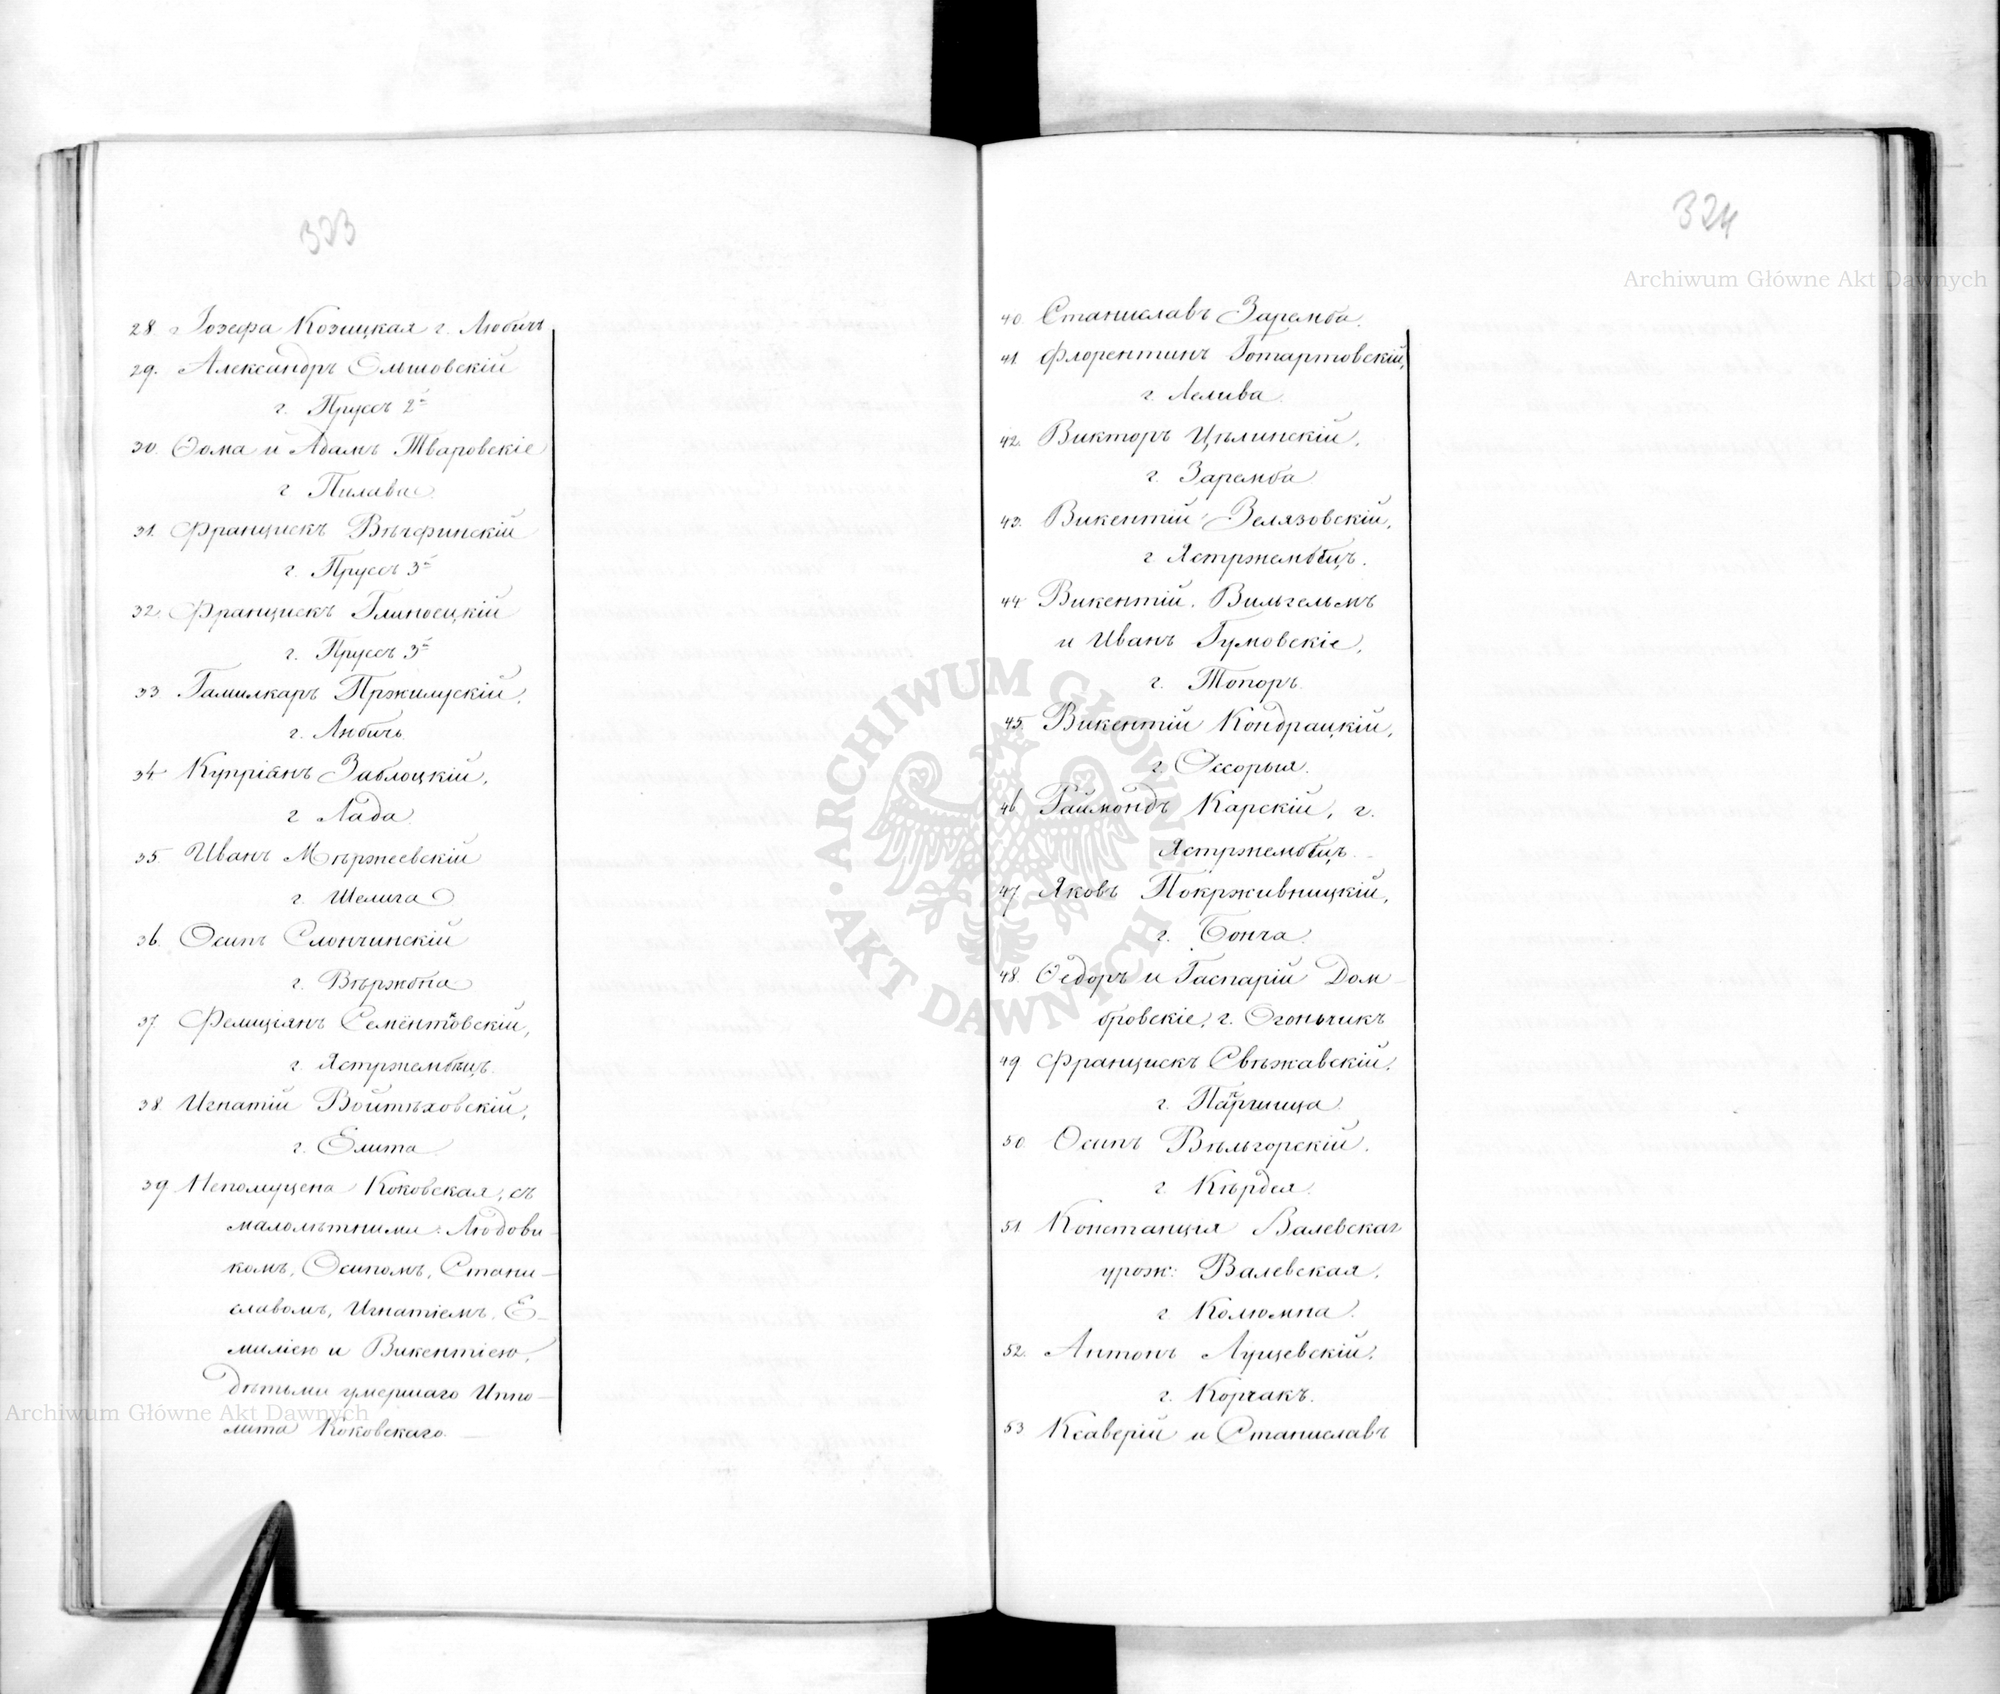 323
28. Іозефа Козицкая г. Любичъ
29. Александръ Ольшовскій
г. Пруссъ 2й
30. Ѳома и Адамъ Тваровскіе
г. Пилава
31. Францискъ Вѣчфинскій
г. Пруссъ 3й
32. Францискъ Глиноецкій
г. Пруссъ 3й
33. Гамилкаръ Пржилускій,
г. Любичъ
34 Купріянъ Заблоцкій,
г Лада
35. Иванъ Мѣржеевскій
г. Шелига
36. Осипъ Слончинскій
г. Вѣржбна
37 Фелиціянъ Семёнтковскій,
г. Ястржембѣцъ.
38. Игнатій Войтѣховскій,
г. Елита
39 Непомуцена Коковская, съ
малолѣтними: Людови-
комъ, Осипомъ, Стани-
славомъ, Игнатіемъ, Е-
миліею и Викентіею,
дѣтьми умершаго Иппо-
лита Коковскаго. —
324
40. Станиславъ Заремба.
41. Флорентинъ Готартовскій,
г. Лелива
42. Викторъ Цѣлинскій,
г. Заремба
43. Викентій Зелязовскій,
г. Ястржембецъ.
44 Викентій, Вильгельмъ
и Иванъ Гумовскіе,
г. Топоръ.
45. Викентій Кондрацкій,
г. Оссорыя.
46 Раймондъ Карскій, г.
Ястржембецъ. –
47 Яковъ Покрживницкій,
г. Бонча.
48. Ѳедоръ и Гаспарій Дом-
бровскіе, г. Огоньчикъ
49 Францискъ Свѣжавскій,
г. Парыица
50. Осипъ Вѣльгорскій,
г. Кѣрдея.
51. Констанція Валевская
урож: Валевская,
г Колюмна.
52. Антонъ Лущевскій,
г. Корчакъ.
53 Ксаверій и Станиславъ
Archiwum Główne Akt Dawnych
Archiwum Główne Akt Dawnych
ARCHIWUM GŁÓWNE · AKT DAWNYCH